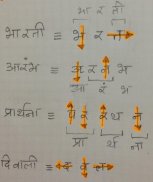 भा र ती
भारती ≡ भ र त
आरंभ ≡ अ र भ
आ रं भ
प्रार्थना ≡ प र थ न
प्रा र्थ ना
दिवाली ≡ द व ल